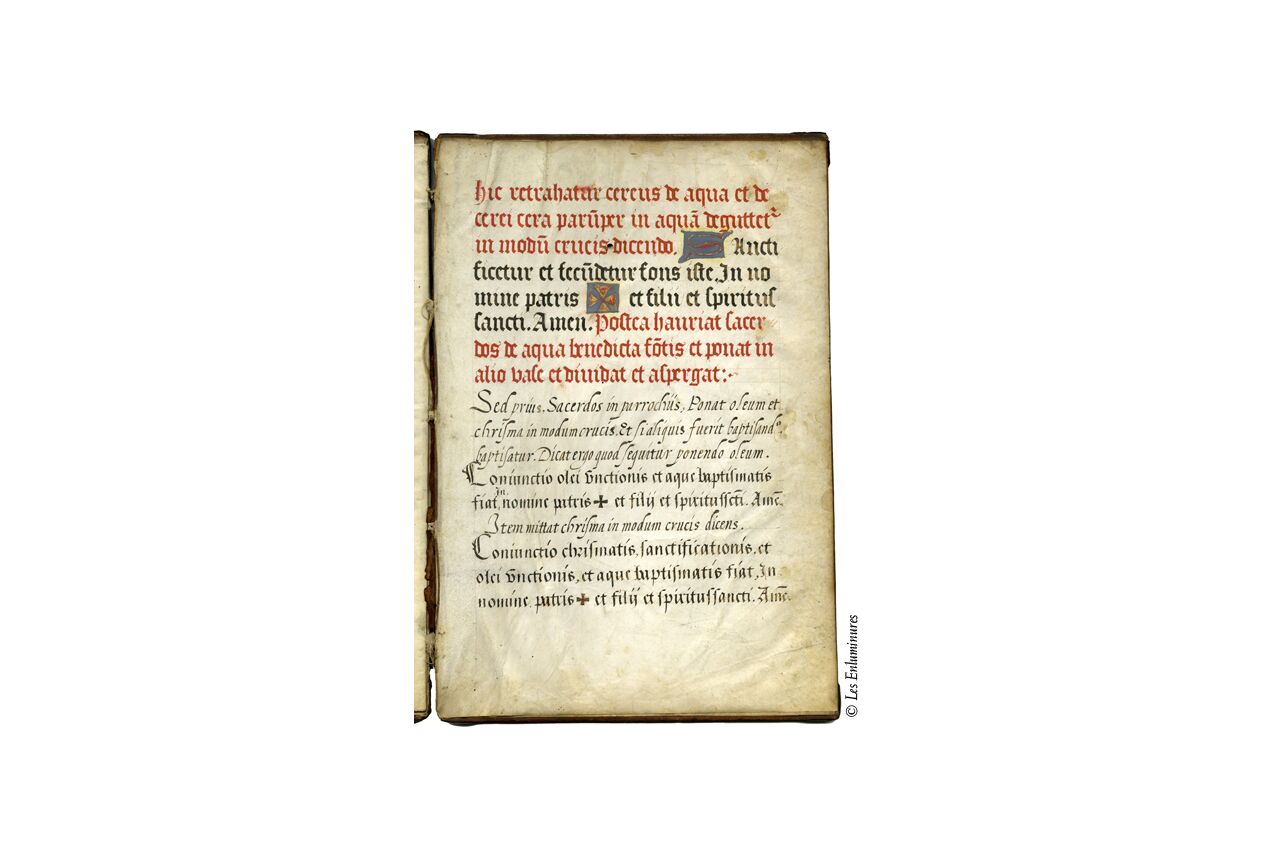 hic retrahatur cereus de aqua et de
cerei cera parũper in aquã deguttet᷑
in modũ crucis dicendo. Sancti
ficetur et fecũdetur fons iste. In no
mine patris ✠ et filii et spiritus
sancti. Amen. Postea hauriat sacer
dos de aqua benedicta fõtis et ponat in
alio vase et diuidat et aspergat :·
Sed prius. Sacerdos in parrochijs, Ponat oleum et
chrisma in modum crucis. Et si aliquis fuerit baptisandꝰ.
baptisatur. Dicat ergo quod sequitur ponendo oleum.
Coniunctio olei vnctionis et aque baptismatis
fiat, In nomine patris ✚ et filij et spiritus scti. Amẽ.
Item mittat chrisma in modum crucis dicens.
Coniunctio chrismatis, sanctificationis, et
olei vnctionis, et aque baptismatis fiat, In
nomine patris ✚ et filij et spiritus sancti. Amẽ.
© Les Enluminures